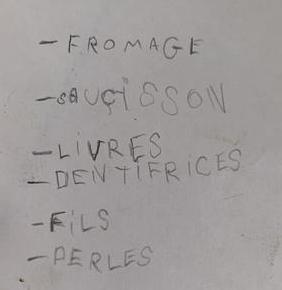 - FROMAGE
- SAUÇiSSON
- LiVRES
- DENTiFRiCES
- FiLS
- PERLES